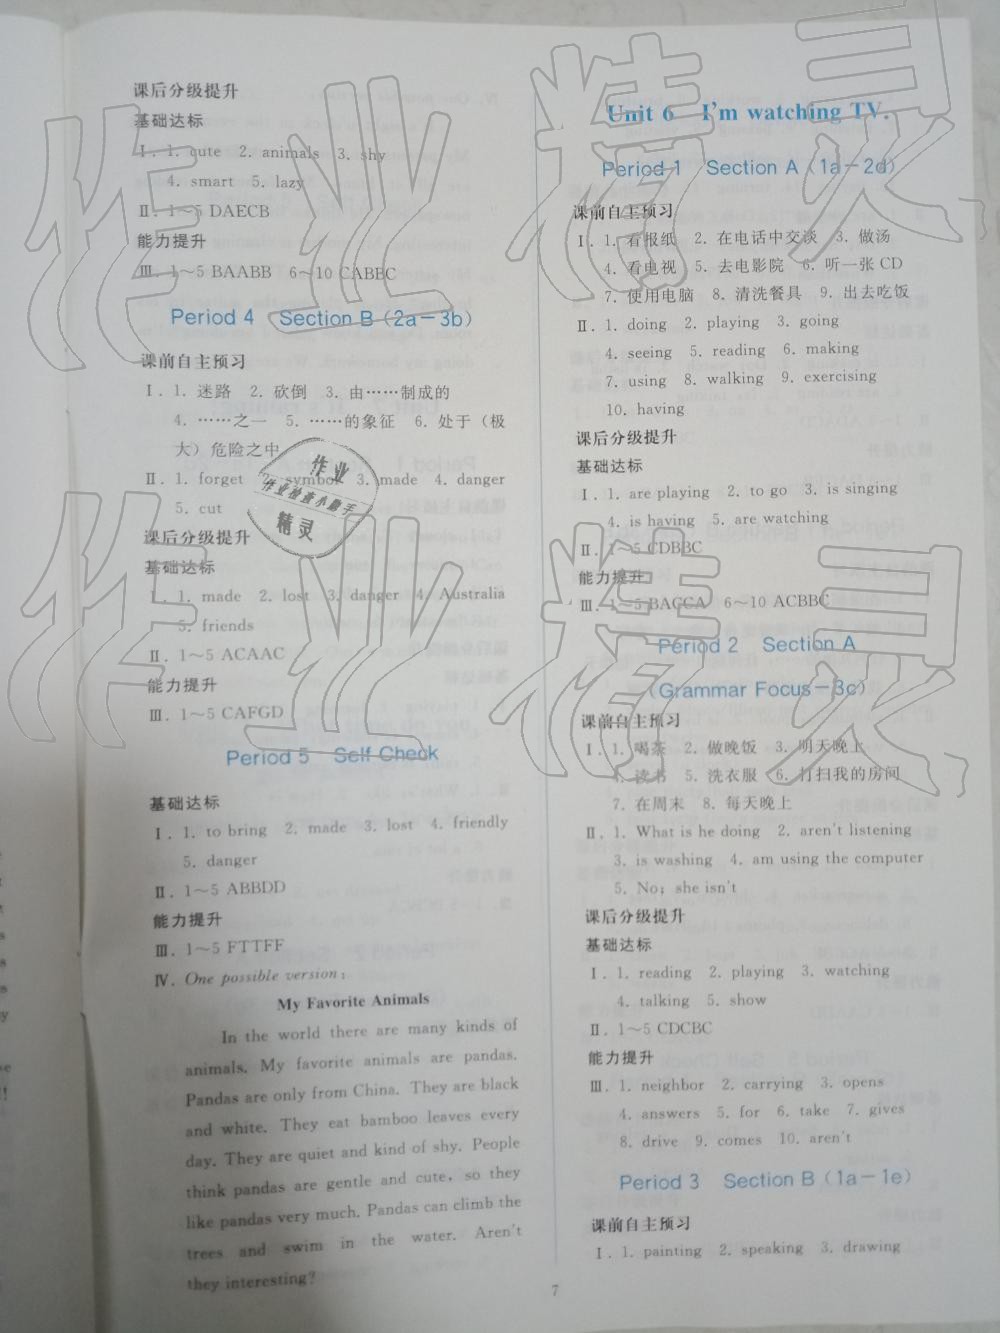 课后分级提升
基础达标
Ⅰ. 1. cute 2. animals 3. shy
4. smart 5. lazy
Ⅱ. 1～5 DAECB
能力提升
Ⅲ. 1～5 BAABB 6～10 CABBC
Period 4 Section B (2a－3b)
课前自主预习
Ⅰ. 1. 迷路 2. 砍倒 3. 由……制成的
4. ……之一 5. ……的象征 6. 处于(极
大)危险之中
Ⅱ. 1. forget 2. symbol 3. made 4. danger
5. cut
课后分级提升
基础达标
Ⅰ. 1. made 2. lost 3. danger 4. Australia
5. friends
Ⅱ. 1～5 ACAAC
能力提升
Ⅲ. 1～5 CAFGD
Period 5 Self Check
基础达标
Ⅰ. 1. to bring 2. made 3. lost 4. friendly
5. danger
Ⅱ. 1～5 ABBDD
能力提升
Ⅲ. 1～5 FTTFF
Ⅳ. One possible version:
My Favorite Animals
In the world there are many kinds of
animals. My favorite animals are pandas.
Pandas are only from China. They are black
and white. They eat bamboo leaves every
day. They are quiet and kind of shy. People
think pandas are gentle and cute, so they
like pandas very much. Pandas can climb the
trees and swim in the water. Aren't
they interesting?
Unit 6 I'm watching TV.
Period 1 Section A (1a－2d)
课前自主预习
Ⅰ. 1. 看报纸 2. 在电话中交谈 3. 做汤
4. 看电视 5. 去电影院 6. 听一张 CD
7. 使用电脑 8. 清洗餐具 9. 出去吃饭
Ⅱ. 1. doing 2. playing 3. going
4. seeing 5. reading 6. making
7. using 8. walking 9. exercising
10. having
课后分级提升
基础达标
Ⅰ. 1. are playing 2. to go 3. is singing
4. is having 5. are watching
Ⅱ. 1～5 CDBBC
能力提升
Ⅲ. 1～5 BACCA 6～10 ACBBC
Period 2 Section A
(Grammar Focus－3c)
课前自主预习
Ⅰ. 1. 喝茶 2. 做晚饭 3. 明天晚上
4. 读书 5. 洗衣服 6. 打扫我的房间
7. 在周末 8. 每天晚上
Ⅱ. 1. What is he doing 2. aren't listening
3. is washing 4. am using the computer
5. No; she isn't
课后分级提升
基础达标
Ⅰ. 1. reading 2. playing 3. watching
4. talking 5. show
Ⅱ. 1～5 CDCBC
能力提升
Ⅲ. 1. neighbor 2. carrying 3. opens
4. answers 5. for 6. take 7. gives
8. drive 9. comes 10. aren't
Period 3 Section B (1a－1e)
课前自主预习
Ⅰ. 1. painting 2. speaking 3. drawing
7
作业
作业检查小助手
精灵
作业精灵
作业精灵